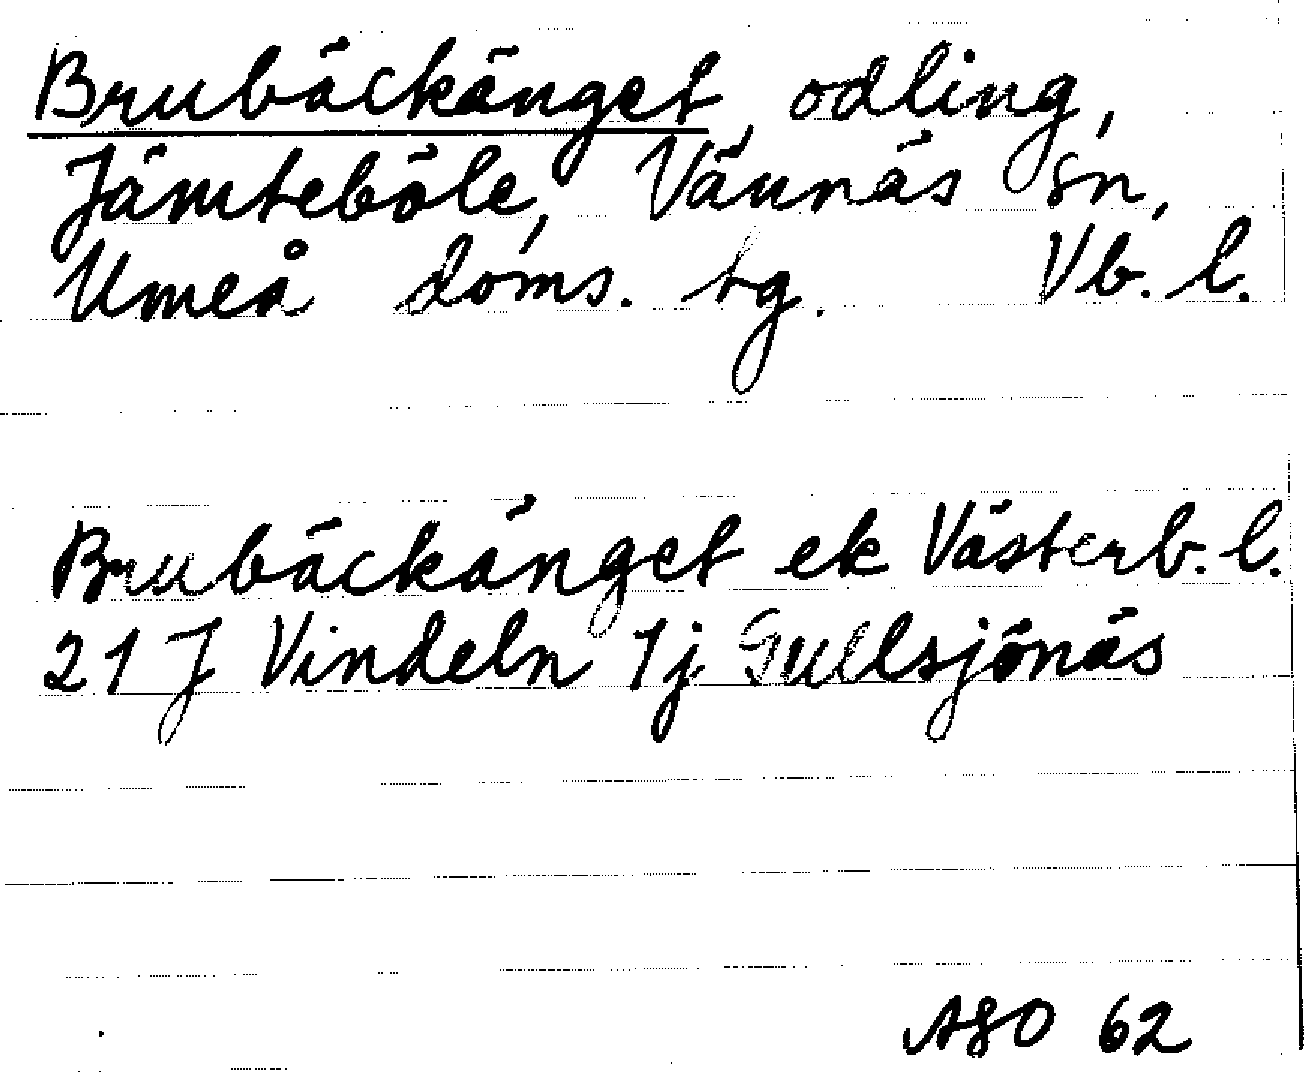 Brubäckänget, odling,
Jämteböle, Vännäs sn,
Umeå doms. tg. Vb. l.
Brubäckänget ek Västerb. l.
21 J Vindeln 1j Gullsjönäs
ASO 62